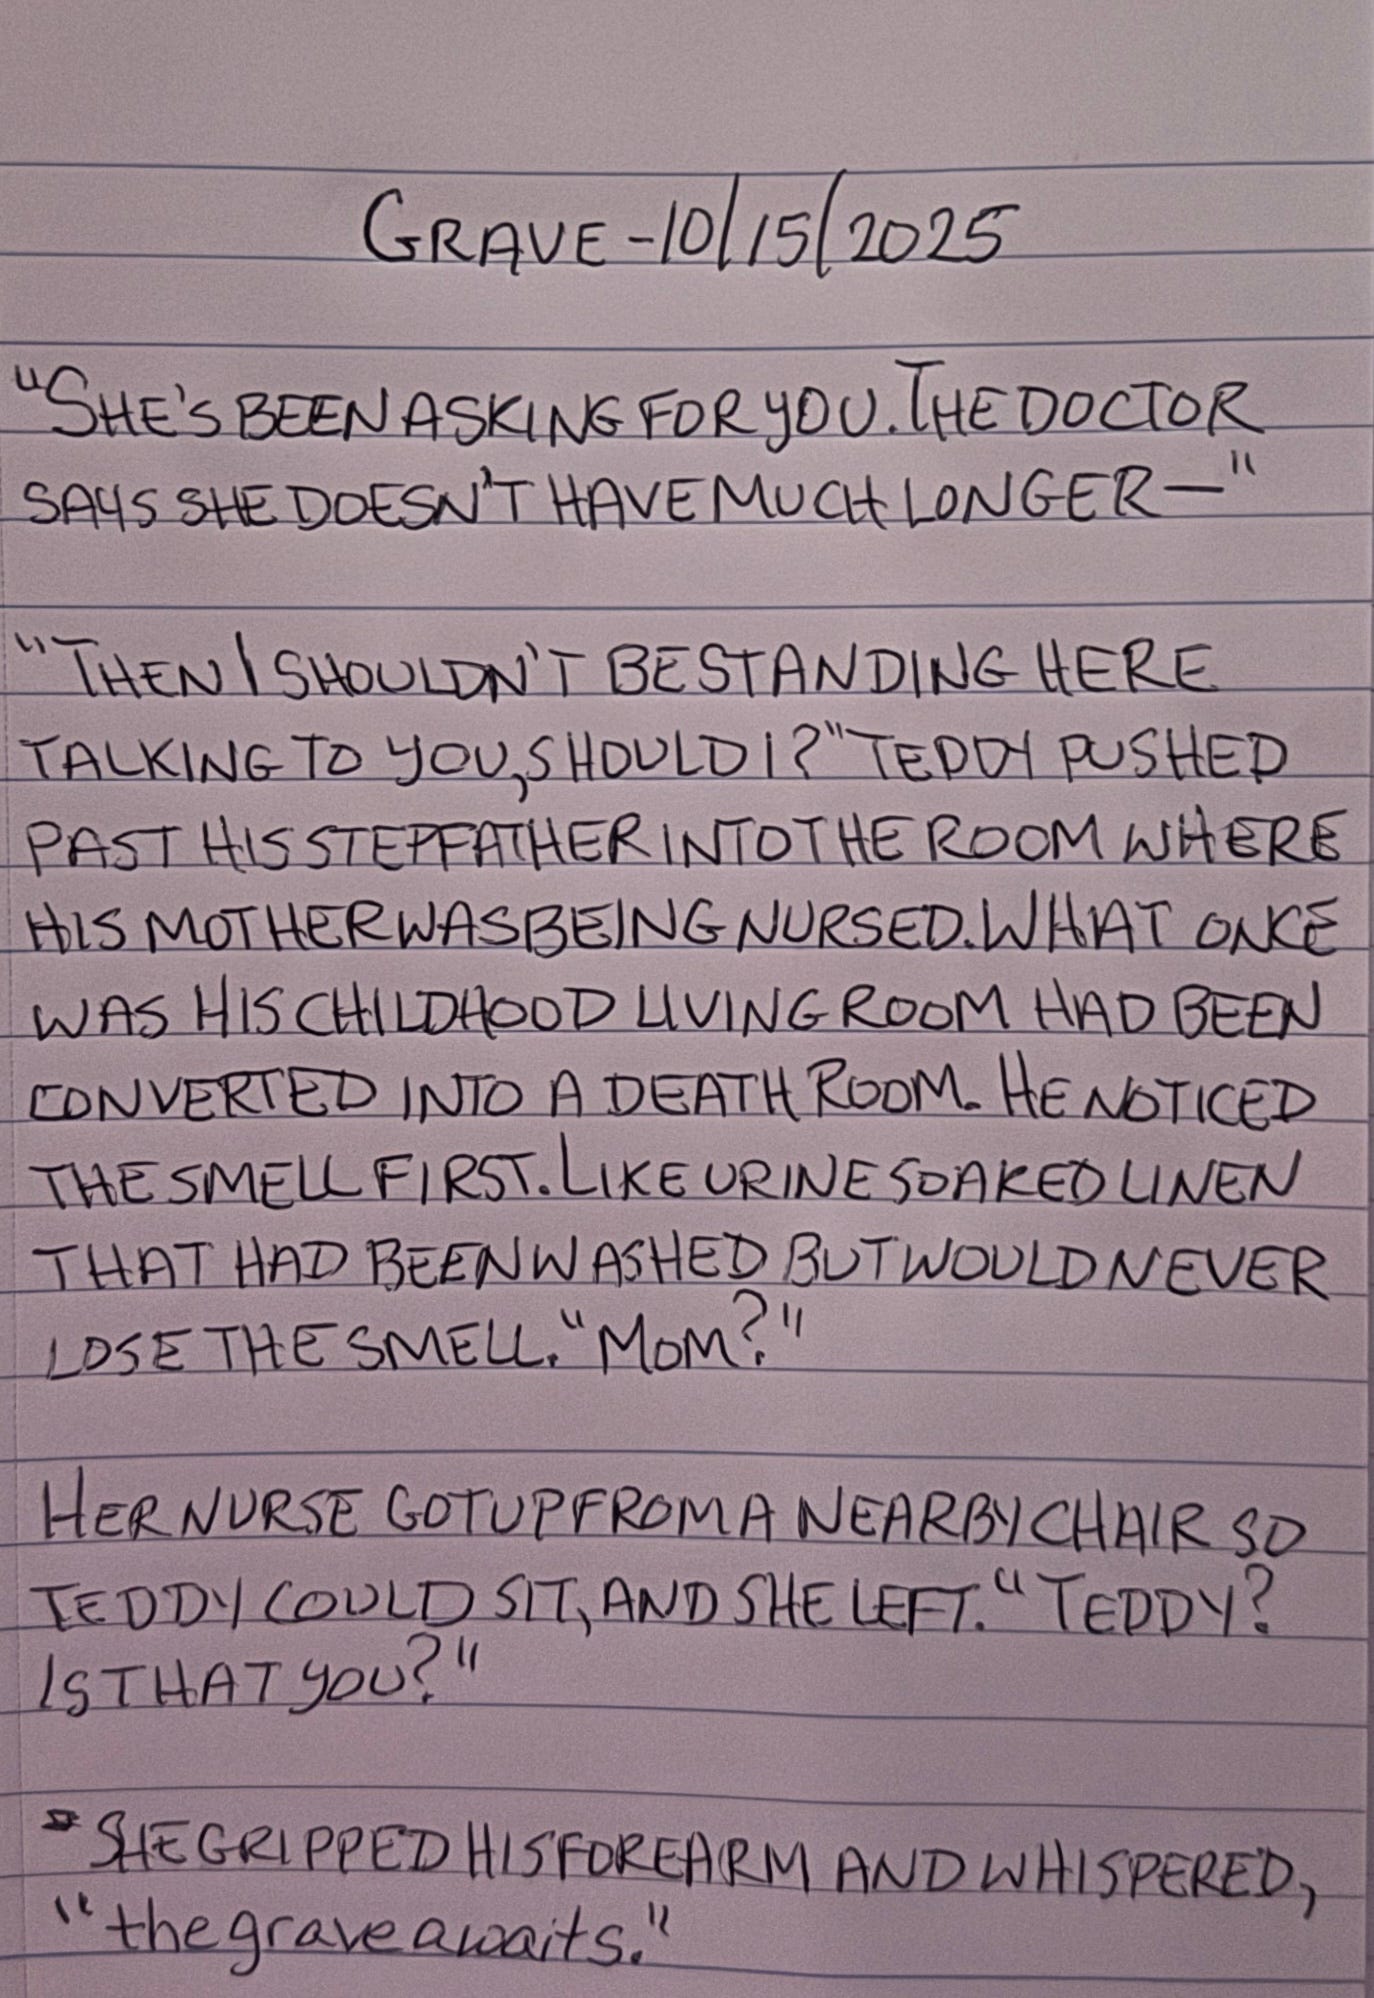 GRAVE - 10/15/2025
"SHE'S BEEN ASKING FOR YOU. THE DOCTOR
SAYS SHE DOESN'T HAVE MUCH LONGER—"
"THEN I SHOULDN'T BE STANDING HERE
TALKING TO YOU, SHOULD I?" TEDDY PUSHED
PAST HIS STEPFATHER INTO THE ROOM WHERE
HIS MOTHER WAS BEING NURSED. WHAT ONCE
WAS HIS CHILDHOOD LIVING ROOM HAD BEEN
CONVERTED INTO A DEATH ROOM. HE NOTICED
THE SMELL FIRST. LIKE URINE SOAKED LINEN
THAT HAD BEEN WASHED BUT WOULD NEVER
LOSE THE SMELL. "MOM?"
HER NURSE GOT UP FROM A NEARBY CHAIR SO
TEDDY COULD SIT, AND SHE LEFT. "TEDDY?
IS THAT YOU?"
SHE GRIPPED HIS FOREARM AND WHISPERED,
"the grave awaits."